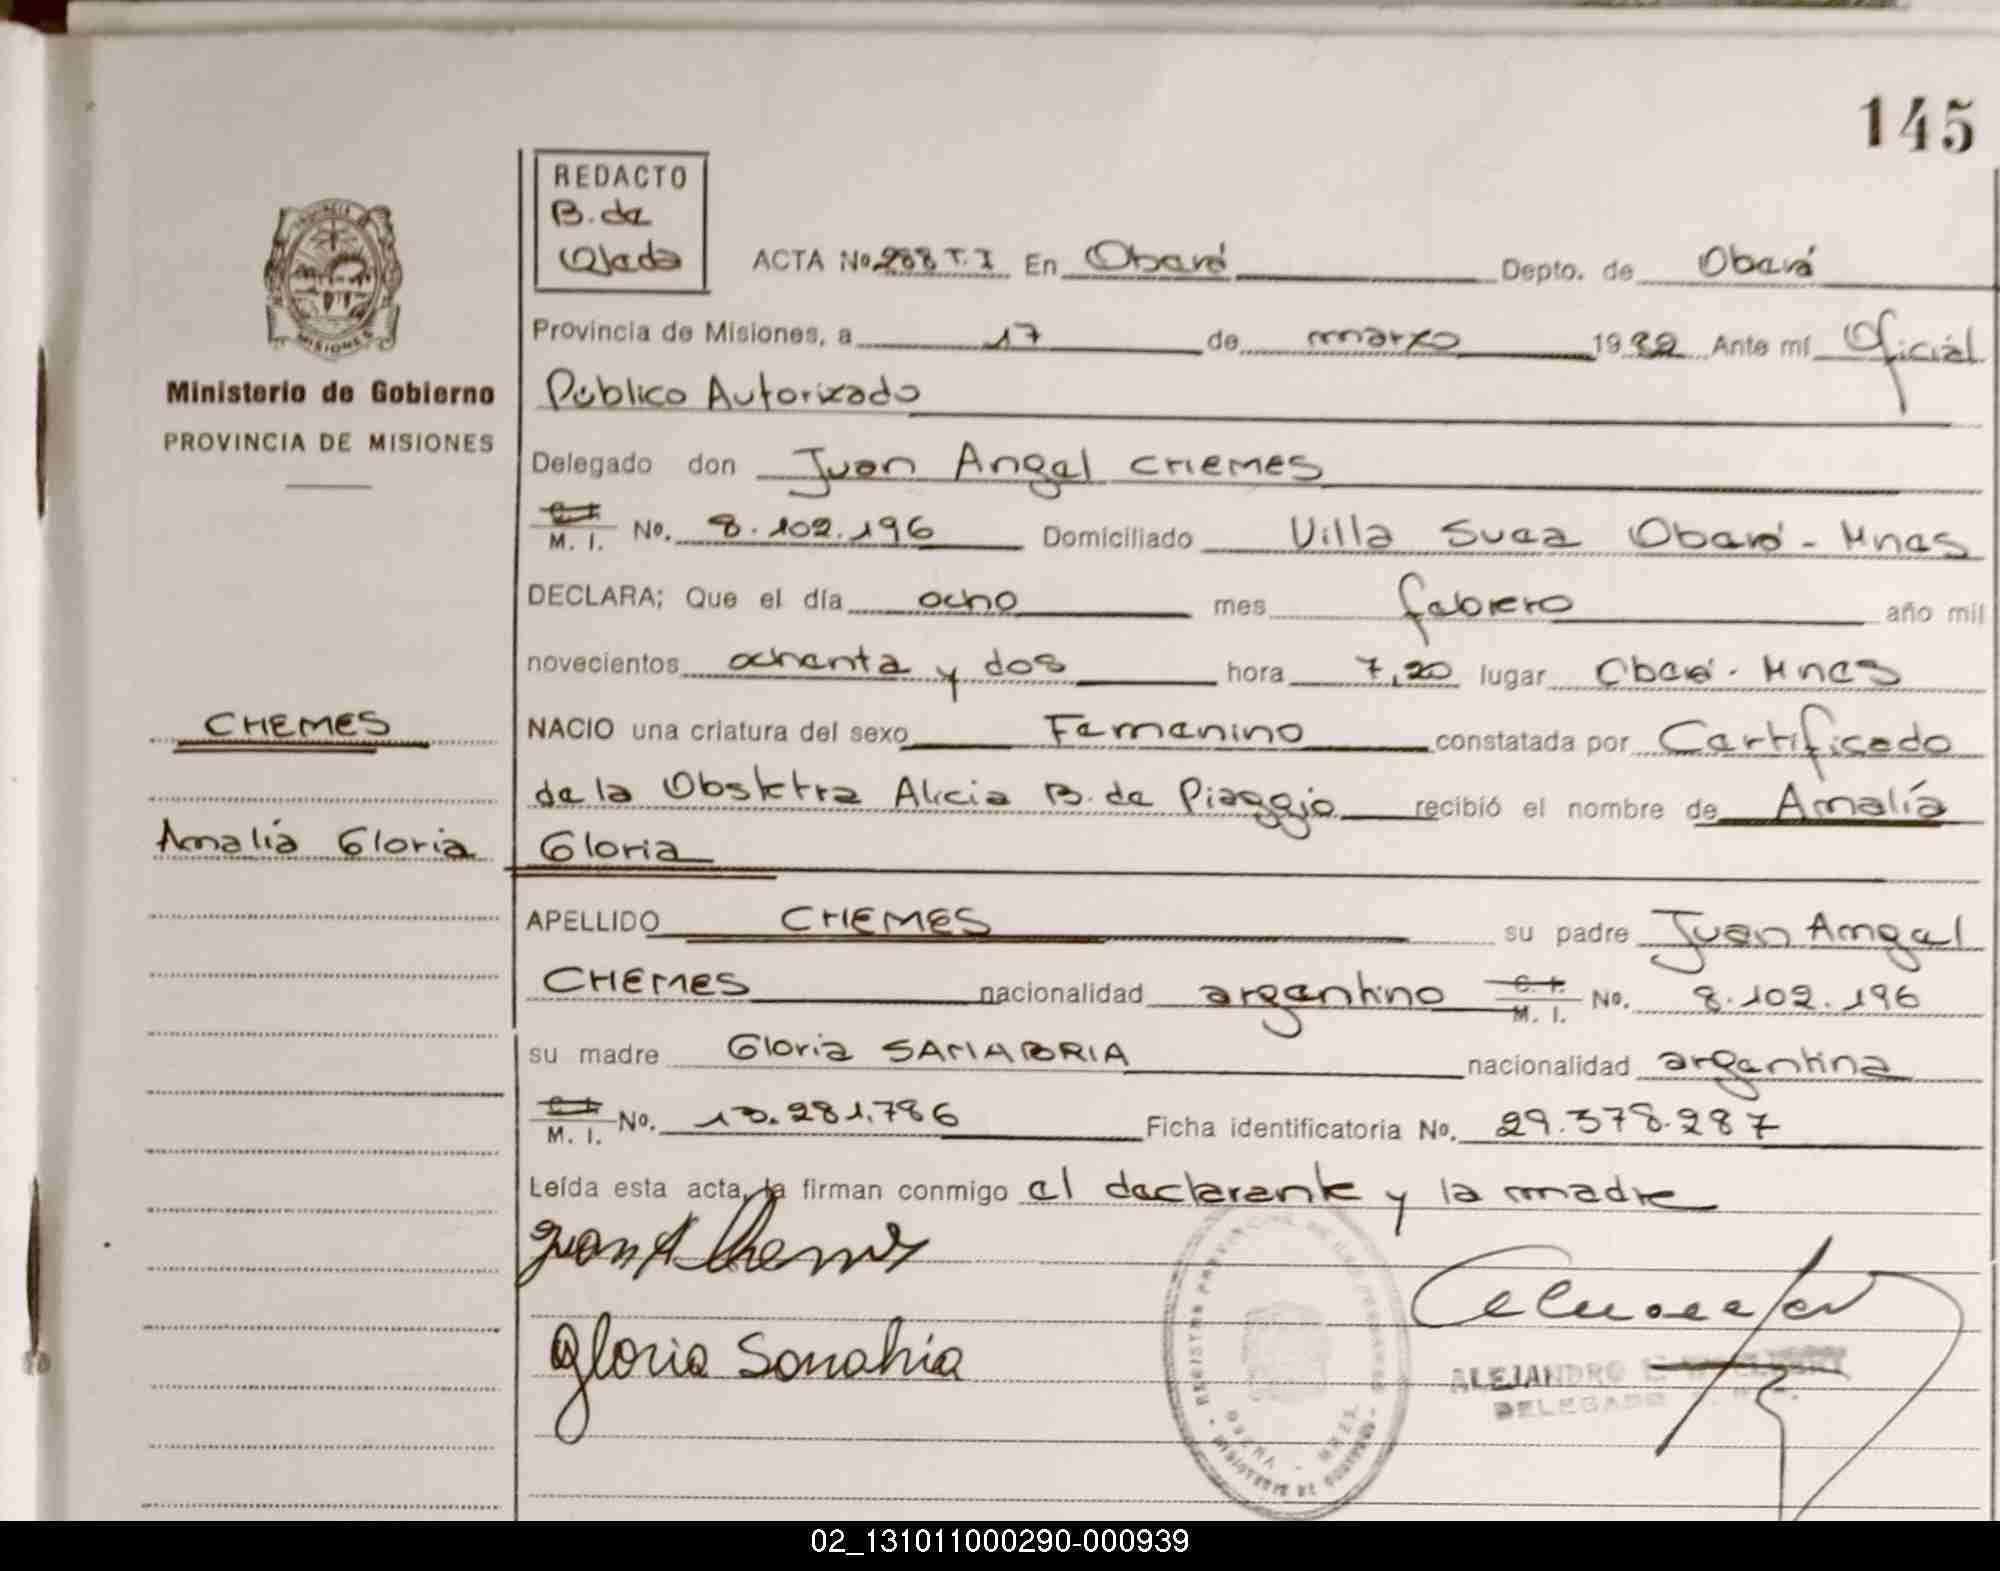 145
REDACTO
B. de
Ojeda
ACTA No. 288 T.I En Oberá Depto. de Oberá
Provincia de Misiones, a 17 de marzo 1982 Ante mí Oficial
Público Autorizado
Delegado don Juan Angel CHEMES
C.I. M. I. No. 8.102.196 Domiciliado Villa Suea Oberá - Mnes
DECLARA; Que el día ocho mes febrero año mil
novecientos ochenta y dos hora 7,20 lugar Oberá - Mnes
NACIO una criatura del sexo Femenino constatada por Certificado
de la Obstetra Alicia B. de Piaggio recibió el nombre de Amalía
Gloria
APELLIDO CHEMES su padre Juan Angel
CHEMES nacionalidad argentino C.I. M. I. No. 8.102.196
su madre Gloria SANABRIA nacionalidad argentina
C.I. M. I. No. 13.281.786 Ficha identificatoria No. 29.378.287
Leída esta acta, la firman conmigo el declarante y la madre
Juan A Chemes
Gloria Sanabria
ALEJANDRO
DELEGADO
REGISTRO PROVINCIAL DE LAS PERSONAS
OBERA - MNES.
MINISTERIO DE GOBIERNO
PROVINCIA
MISIONES
Ministerio de Gobierno
PROVINCIA DE MISIONES
CHEMES
Amalía Gloria
02_131011000290-000939